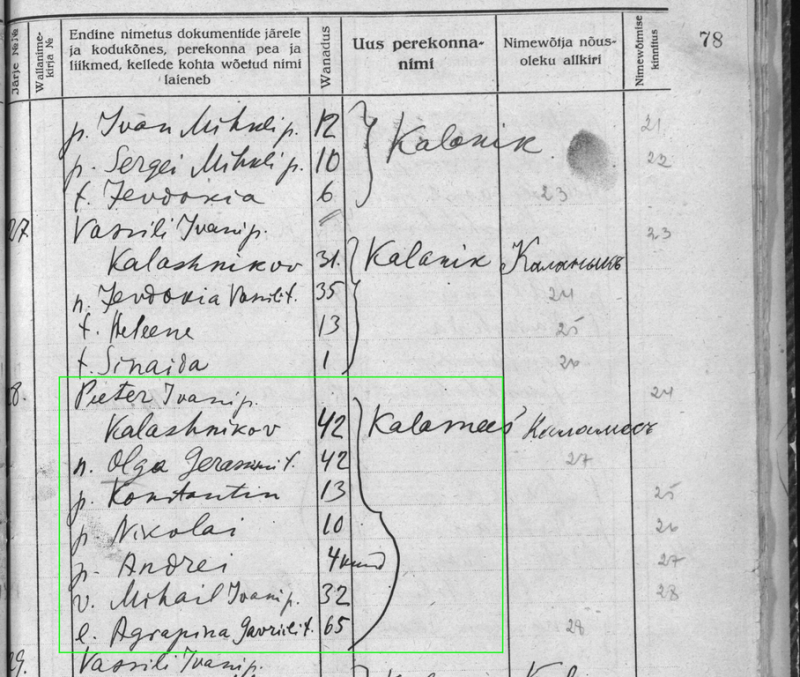 Järje №№
Wallanime-
kirja №
Endine nimetus dokumentide järele
ja kodukõnes, perekonna pea ja
liikmed, kellede kohta wõetud nimi
laieneb
Wanadus
Uus perekonna-
nimi
Nimewõtja nõus-
oleku allkiri
Nimewõtmise
kinnitus
78
p. Ivan Mihaili p. 12 Kalanik 21
p. Sergei Mihaili p. 10 22
t. Jevdokia 6 23
27. Vassili Ivani p. 23
Kalashnikov 31. Kalanik Каланыкъ
n. Jevdokia Vassili t. 35 24
t. Heleene 13 25
t. Sinaida 1 26
8. Pieter Ivani p. 24
Kalashnikov 42 Kalamees Каламеесъ
n. Olga Gerassimi t. 42 27
p. Konstantin 13 25
p. Nikolai 10 26
p. Andrei 4 kuud 27
v. Mihail Ivani p. 32 28
e. Agrapina Gavrili t. 65 28
29. Vassili Ivani p.